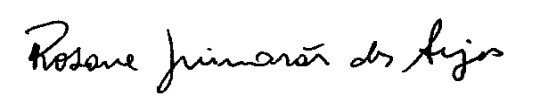 Rosane Guimarães dos Anjos